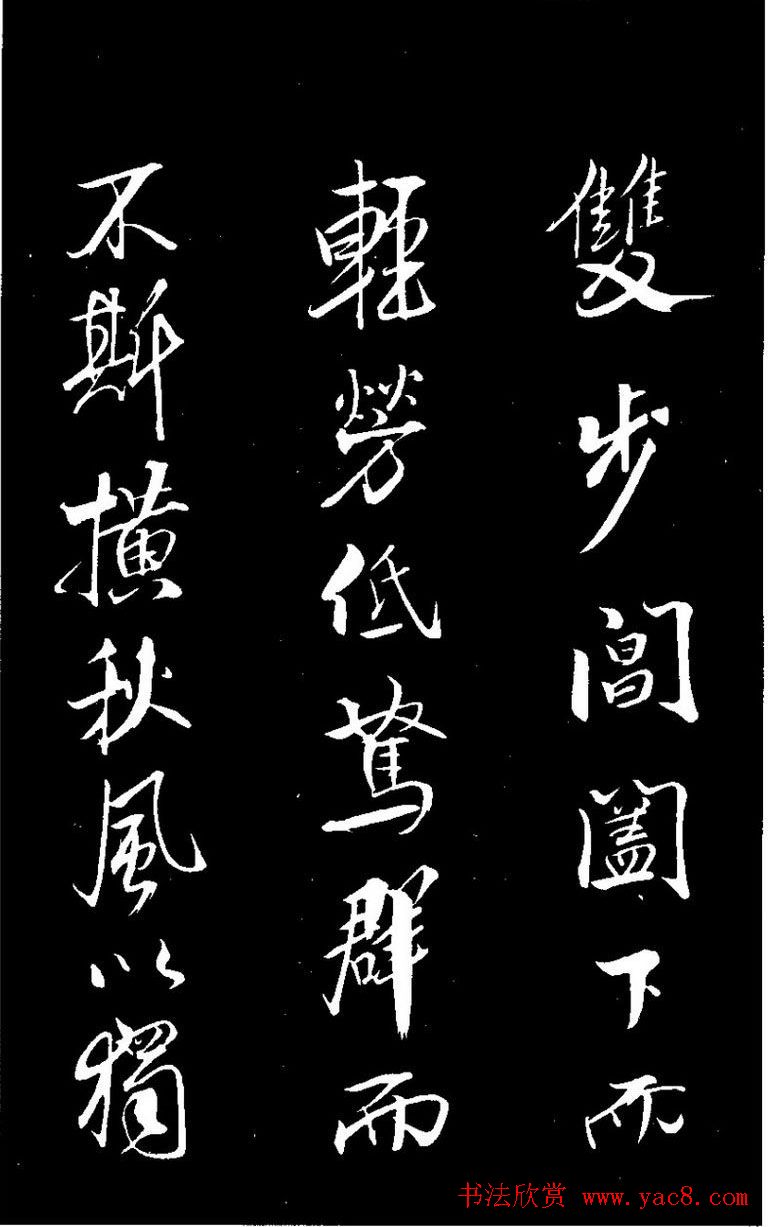 雙步閶闔下而
輕勞低駑群而
不斯橫秋風以獨
书法欣赏 www.yac8.com